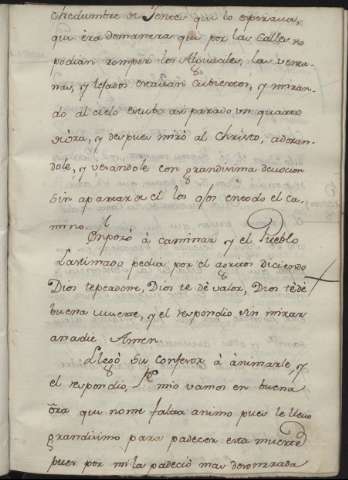 chedumbre de Jente qui lo esperauan,
qui era de manera qui por las Calles no
podian romper los Alguaziles, las venta
nas, y tejados estauan cubiertos, y miran
do al cielo estubo assi parado un quarto
de ora, y despues miró al Christo, adoran
dole, y vesandole con grandissima deuocion
sin apartar de el los ojos en todo el ca
mino.
Enpezó á caminar y el Pueblo
Lastimado pedia por el a gritos diciendo
Dios te perdone, Dios te dé valor, Dios te dé
buena muerte, y el respondio sin mirar
a nadie Amen
Llegó su confesor á ánimarle, y
el respondio, Pe mio vamos en buena
óra que no me falta animo pues le lleuo
grandissimo para padecer esta muerte
pues por mi la padeció mas deshonrada